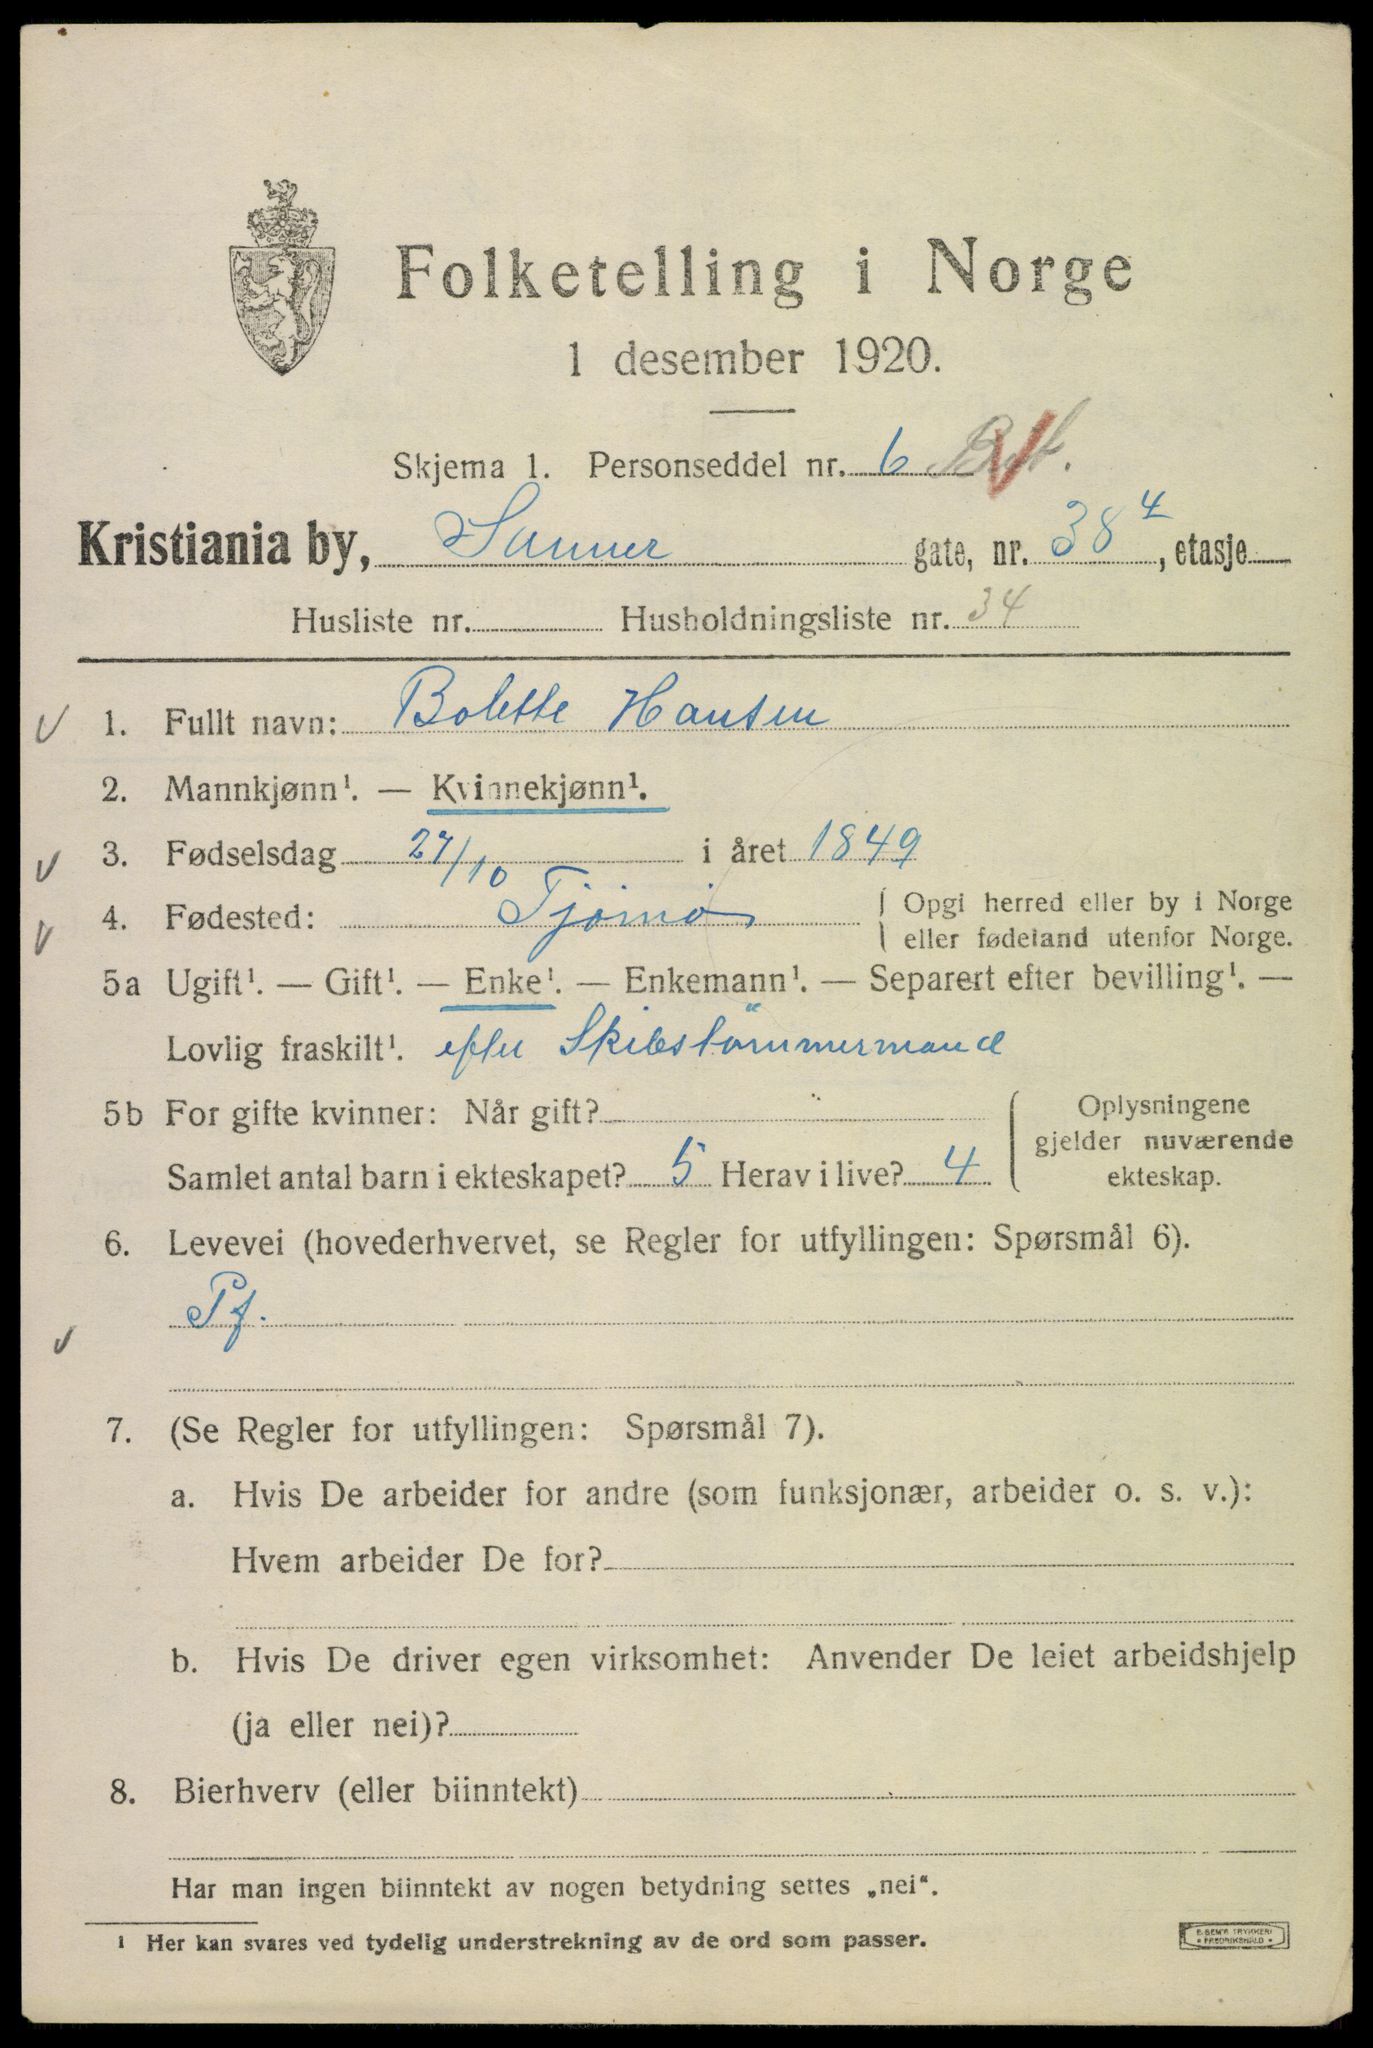 Folketelling i Norge
1 desember 1920.
Skjema 1. Personseddel nr. 6
Kristiania by, Sanner gate, nr. 38 4, etasje
Husliste nr. Husholdningsliste nr. 34
1. Fullt navn: Bolette Hansen
2. Mannkjønn¹. — Kvinnekjønn¹.
3. Fødselsdag 27/10 i året 1849
4. Fødested: Tjømø { Opgi herred eller by i Norge
eller fødeland utenfor Norge.
5a Ugift¹. — Gift¹. — Enke¹. — Enkemann¹. — Separert efter bevilling¹. —
Lovlig fraskilt¹. efter Skibstömmermand
5b For gifte kvinner: Når gift?
Samlet antal barn i ekteskapet? 5 Herav i live? 4
Oplysningene
gjelder nuværende
ekteskap.
6. Levevei (hovederhvervet, se Regler for utfyllingen: Spørsmål 6).
Pf.
7. (Se Regler for utfyllingen: Spørsmål 7).
a. Hvis De arbeider for andre (som funksjonær, arbeider o. s. v.):
Hvem arbeider De for?
b. Hvis De driver egen virksomhet: Anvender De leiet arbeidshjelp
(ja eller nei)?
8. Bierhverv (eller biinntekt)
Har man ingen biinntekt av nogen betydning settes „nei“.
¹ Her kan svares ved tydelig understrekning av de ord som passer.
E. SEM'S TRYKKERI
• FREDRIKSHALD •